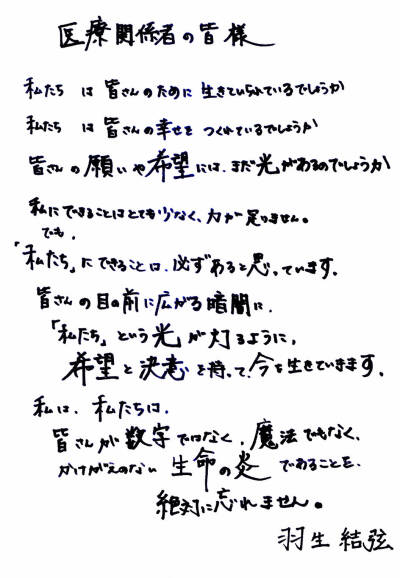 医療関係者の皆様
私たち は 皆さんのために 生きていられているでしょうか
私たち は 皆さんの幸せを つくれているでしょうか
皆さんの願いや希望には、まだ光があるのでしょうか
私にできることはとても少なく、力が足りません。
でも、
「私たち」にできることは、必ずあると思っています。
皆さんの目の前に広がる暗闇に、
「私たち」という光が灯るように、
希望と決意を持って、今を生きていきます。
私は、私たちは、
皆さんが数字ではなく、魔法でもなく、
かけがえのない 生命の炎 であることを、
絶対に忘れません。
羽生 結弦